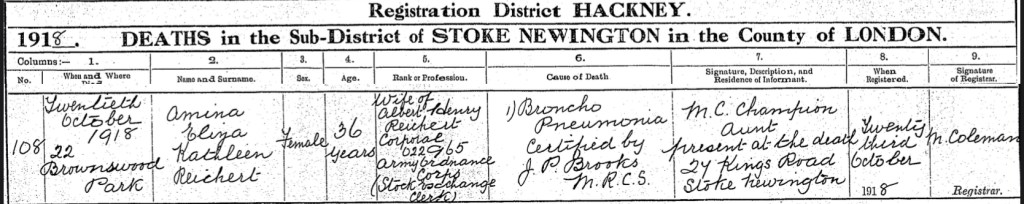 Registration District HACKNEY.
1918. DEATHS in the Sub-District of STOKE NEWINGTON in the County of LONDON.
Columns:— 1. 2. 3. 4. 5. 6. 7. 8. 9.
No. When and Where Died. Name and Surname. Sex. Age. Rank or Profession. Cause of Death Signature, Description, and Residence of Informant. When Registered. Signature of Registrar.
108
Twentieth
October
1918
22
Brownswood
Park
Amina
Eliza
Kathleen
Reichert
Female
36
years
Wife of
Albert Henry
Reichert
Corporal
022965
Army Ordnance
Corps
(Stock Exchange
Clerk)
1) Broncho
Pneumonia
Certified by
J. P. Brooks
M.R.C.S.
M.C. Champion
Aunt
present at the death
24 Kings Road
Stoke Newington
Twenty
third
October
1918
M. Coleman
Registrar.